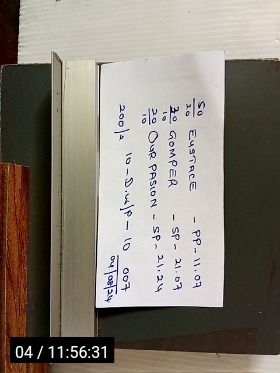 50/20 EUSTACE - PP - 11.07
20/10 GOMPER - SP - 21.07
20/10 OUR PASION - SP - 21.24
200/2 10 - D.W/P - 10 007
04/08/24
04 / 11:56:31